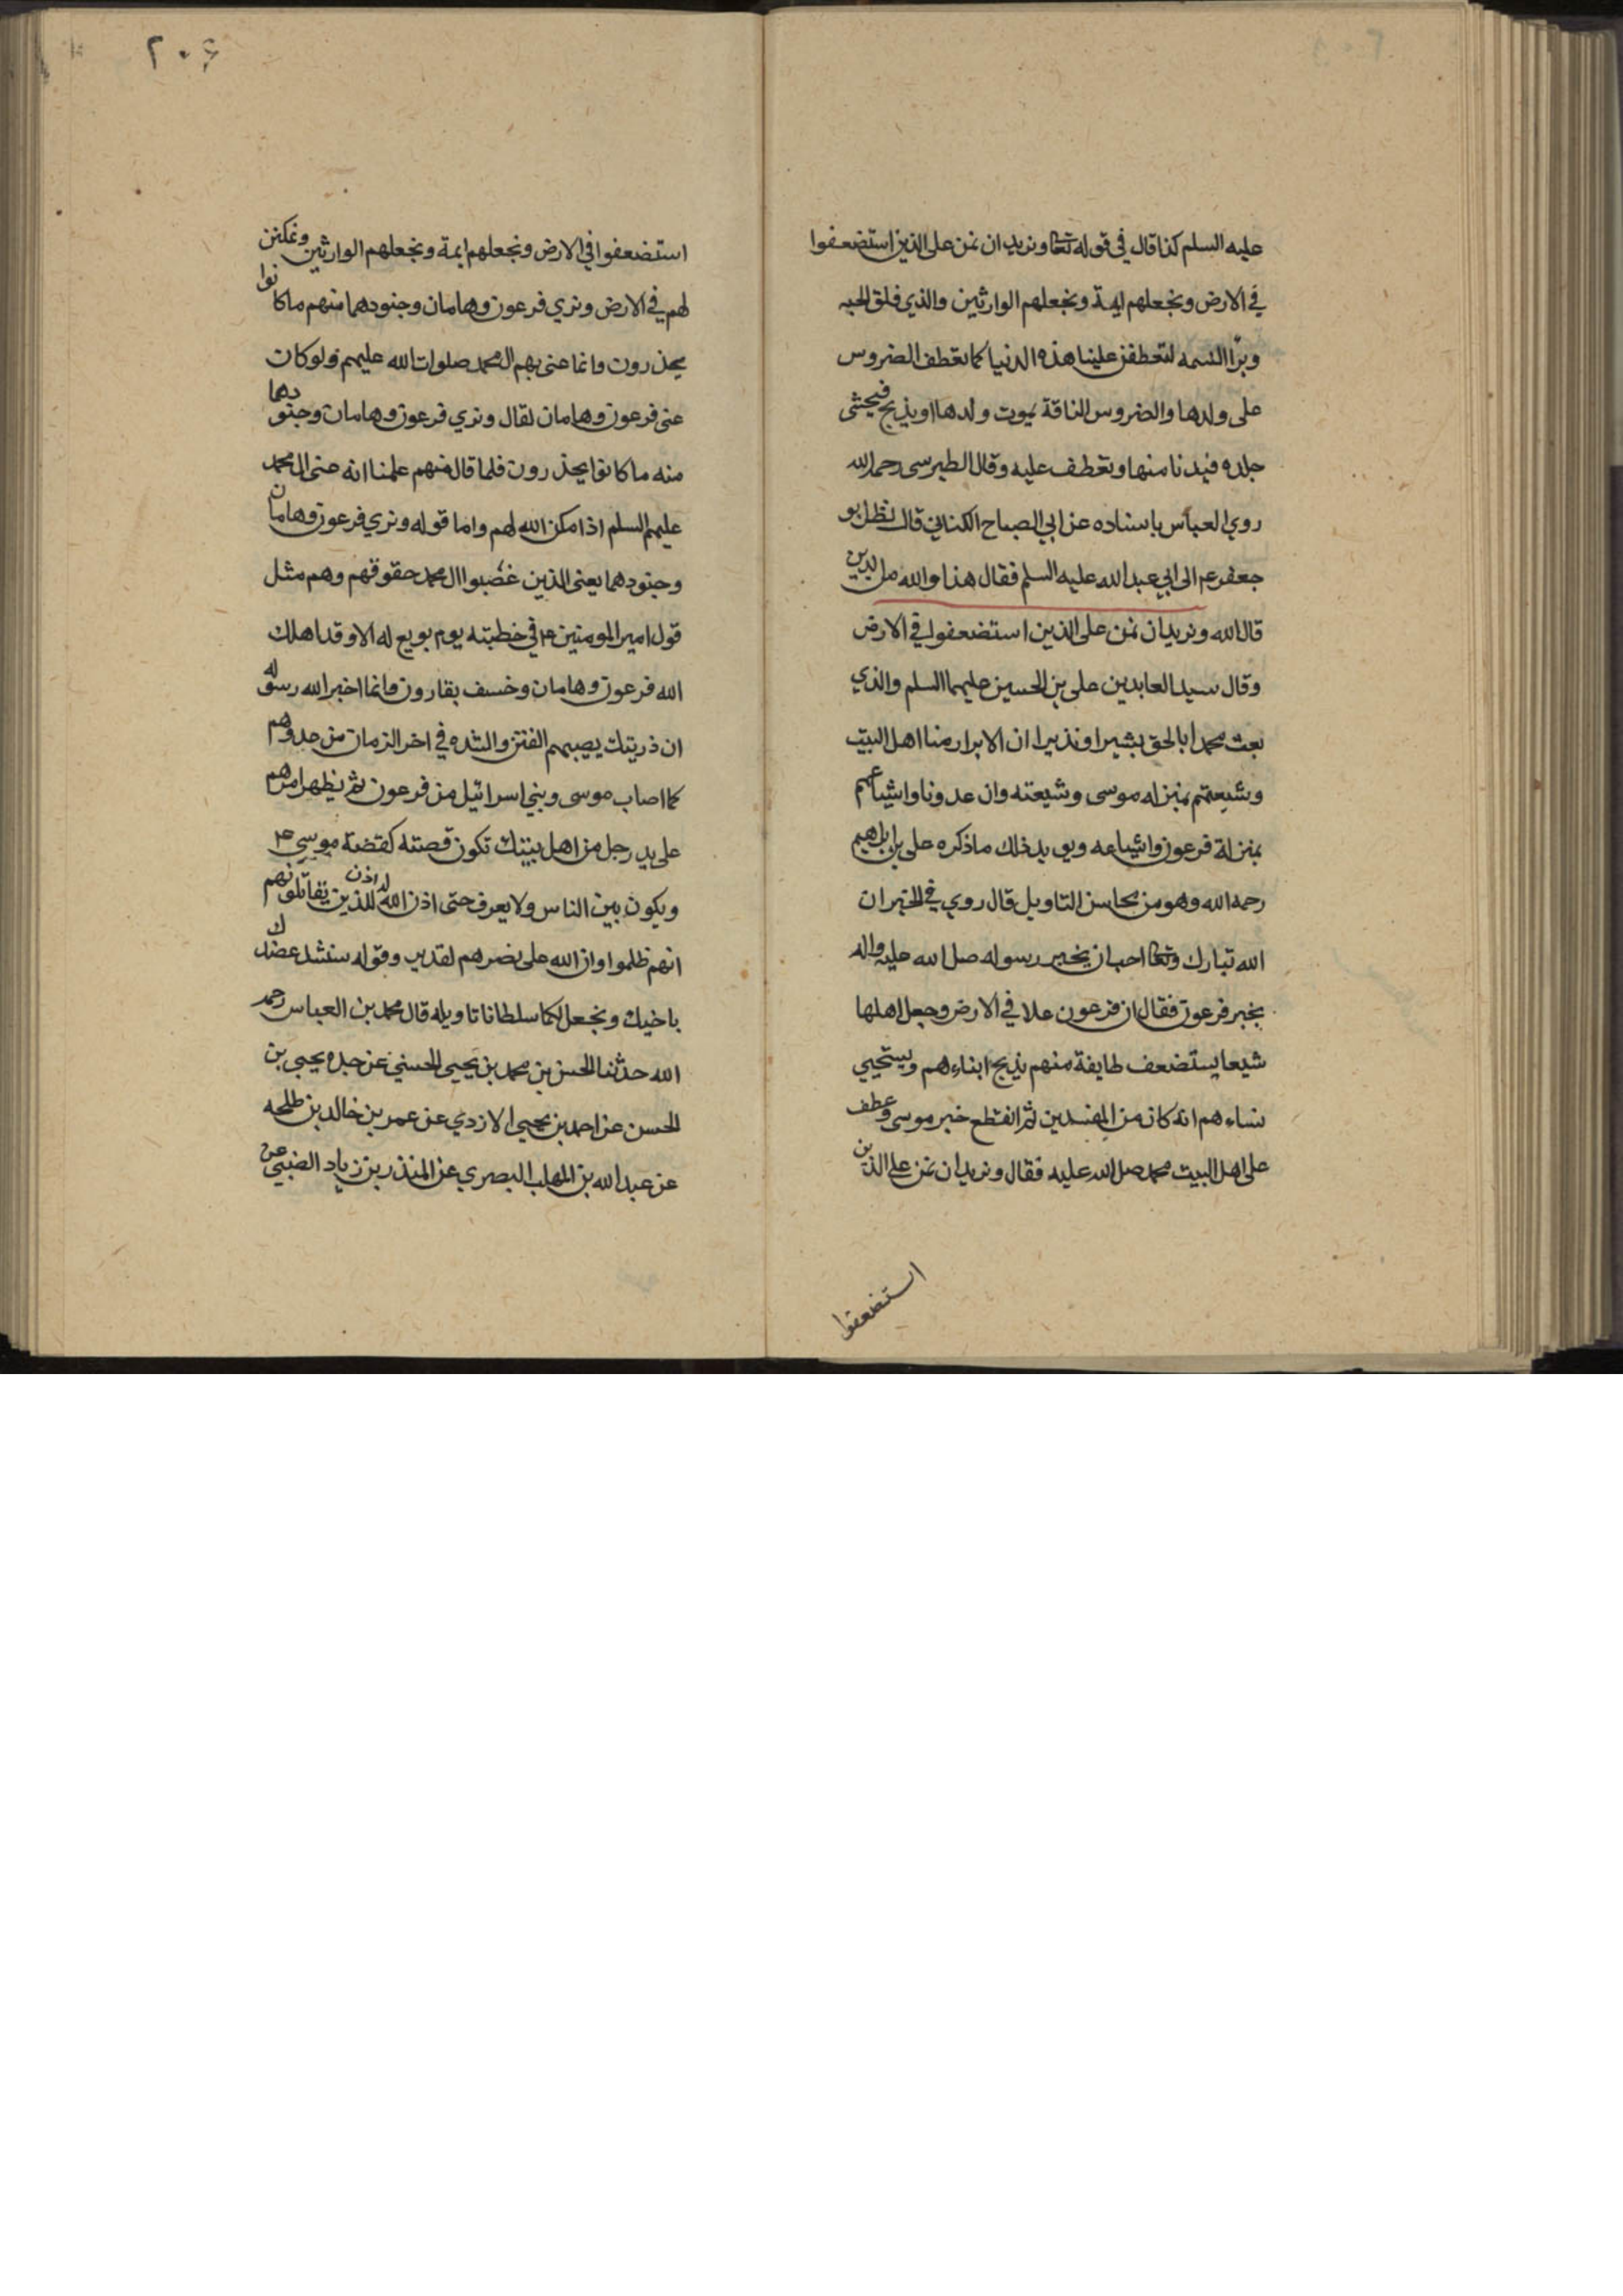 عليه السلم كذا قال في قوله تعا ونريد ان نمن على الذين استضعفوا
في الارض ونجعلهم ايمة ونجعلهم الوارثين والذي فلق الحبه
وبرّا النسمه لتعطفن علينا هذه الدنيا كما تعطف الضروس
على ولدها والضروس الناقة يموت ولدها او يذبح فيحشى
جلده فيدنا منها وتعطف عليه وقال الطبرسى رحمه الله
روي العباس باسناده عن ابي الصباح الكناني قال نظر ابو
جعفر عم الى ابي عبد الله عليه السلم فقال هذا والله من الذين
قال الله ونريد ان نمن على الذين استضعفوا في الارض
وقال سيد العابدين على بن الحسين عليهما السلم والذي
بعث محمدا بالحق بشيرا ونذيرا ان الابرار منا اهل البيت
وشيعتهم بمنزله موسى وشيعته وان عدونا واشياعهم
بمنزلة فرعون واشياعه ويويد ذلك ما ذكره على بن ابراهيم
رحمه الله وهو من محاسن التاويل قال روي في الخبر ان
الله تبارك وتعا احب ان يخبر رسوله صل الله عليه واله
بخبر فرعون فقال ان فرعون علا في الارض وجعل اهلها
شيعا يستضعف طايفة منهم يذبح ابناءهم ويستحيي
نساءهم انه كان من المفسدين ثم انقطع خبر موسى وعطف
على اهل البيت محمد صل الله عليه فقال ونريد ان نمن على الذين
استضعفوا
٢٠۶
استضعفوا في الارض ونجعلهم ايمة ونجعلهم الوارثين ونمكنن
لهم في الارض ونري فرعون وهامان وجنودهما منهم ما كانوا
يحذرون وانما عنى بهم ال محمد صلوات الله عليهم ولو كان
عنى فرعون وهامان لقال ونري فرعون وهامان وجنودهما
منه ما كانوا يحذرون فلما قال منهم علمنا انه عنى ال محمد
عليهم السلم اذا مكن الله لهم واما قوله ونري فرعون وهامان
وجنودهما يعنى الذين غصبوا ال محمد حقوقهم وهم مثل
قول امير المومنين ع في خطبته يوم بويع له الا وقد اهلك
الله فرعون وهامان وخسف بقارون وانما اخبر الله رسوله
ان ذريتك يصيبهم الفتن والشده في اخر الزمان من عدوهم
كما اصاب موسى وبني اسرائيل من فرعون ثم يظهر امرهم
على يد رجل من اهل بيتك تكون قصته كقصة موسى ع
ويكون بين الناس ولا يعرف حتى اذن الله له اذن للذين يقاتلونهم
انهم ظلموا وان الله على نصرهم لقدير وقوله سنشد عضدك
باخيك ونجعل لكما سلطانا تاويله قال محمد بن العباس رحمه
الله حدثنا الحسن بن محمد بن يحيى الحسني عن جده يحيى بن
الحسن عن احمد بن يحيى الازدي عن عمر بن خالد بن طلحه
عن عبد الله بن المهلب البصري عن المنذر بن زياد الضبي عن